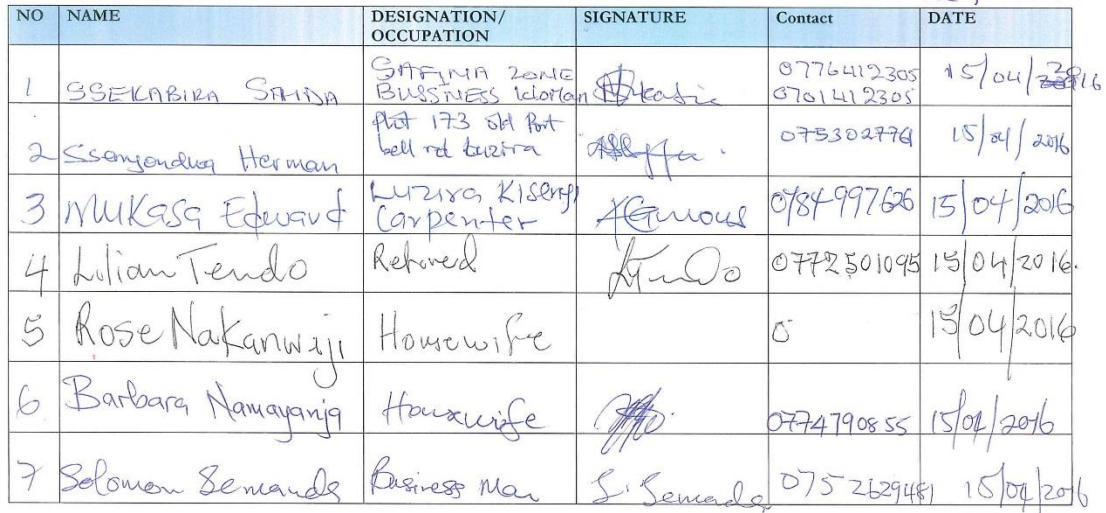 NO NAME DESIGNATION/ OCCUPATION SIGNATURE Contact DATE
1 SSEKABIRA SAHIDA SAFINA ZONE BUSSINESS Woman 0776412305 0701412305 15/04/2016
2 Ssenyondwa Herman Plot 173 old Port bell rd luzira 075302776 15/04/2016
3 MUKASA Edward Luzira Kisenyi Carpenter 0784997626 15/04/2016
4 Lilian Tendo Retired LTendo 0772501095 15/04/2016.
5 Rose Nakanwiji Housewife 0 15/04/2016
6 Barbara Namayanja Housewife 0774790855 15/04/2016
7 Solomon Semanda Business Man S. Semanda 0752629481 15/04/2016